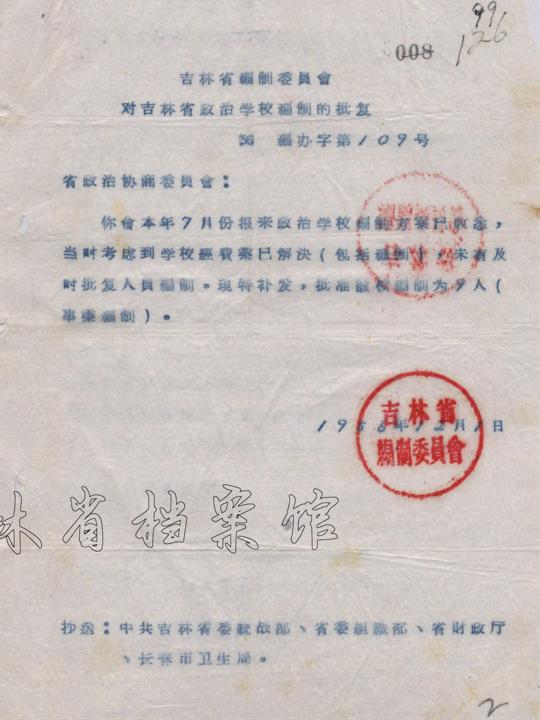 99
008 126
吉林省编制委員會
对吉林省政治学校编制的批复
56 编办字第109号
省政治协商委員會：
你會本年7月份报来政治学校编制方案已收悉，
当时考虑到学校經費業已解决（包括编制），未有及
时批复人員编制。現特补发，批准該校编制为9人（
事業编制）。
1956年12月1日
吉林省
編制委員會
林省档案馆
抄送：中共吉林省委統战部、省委組織部、省財政厅
、长春市卫生局。
2